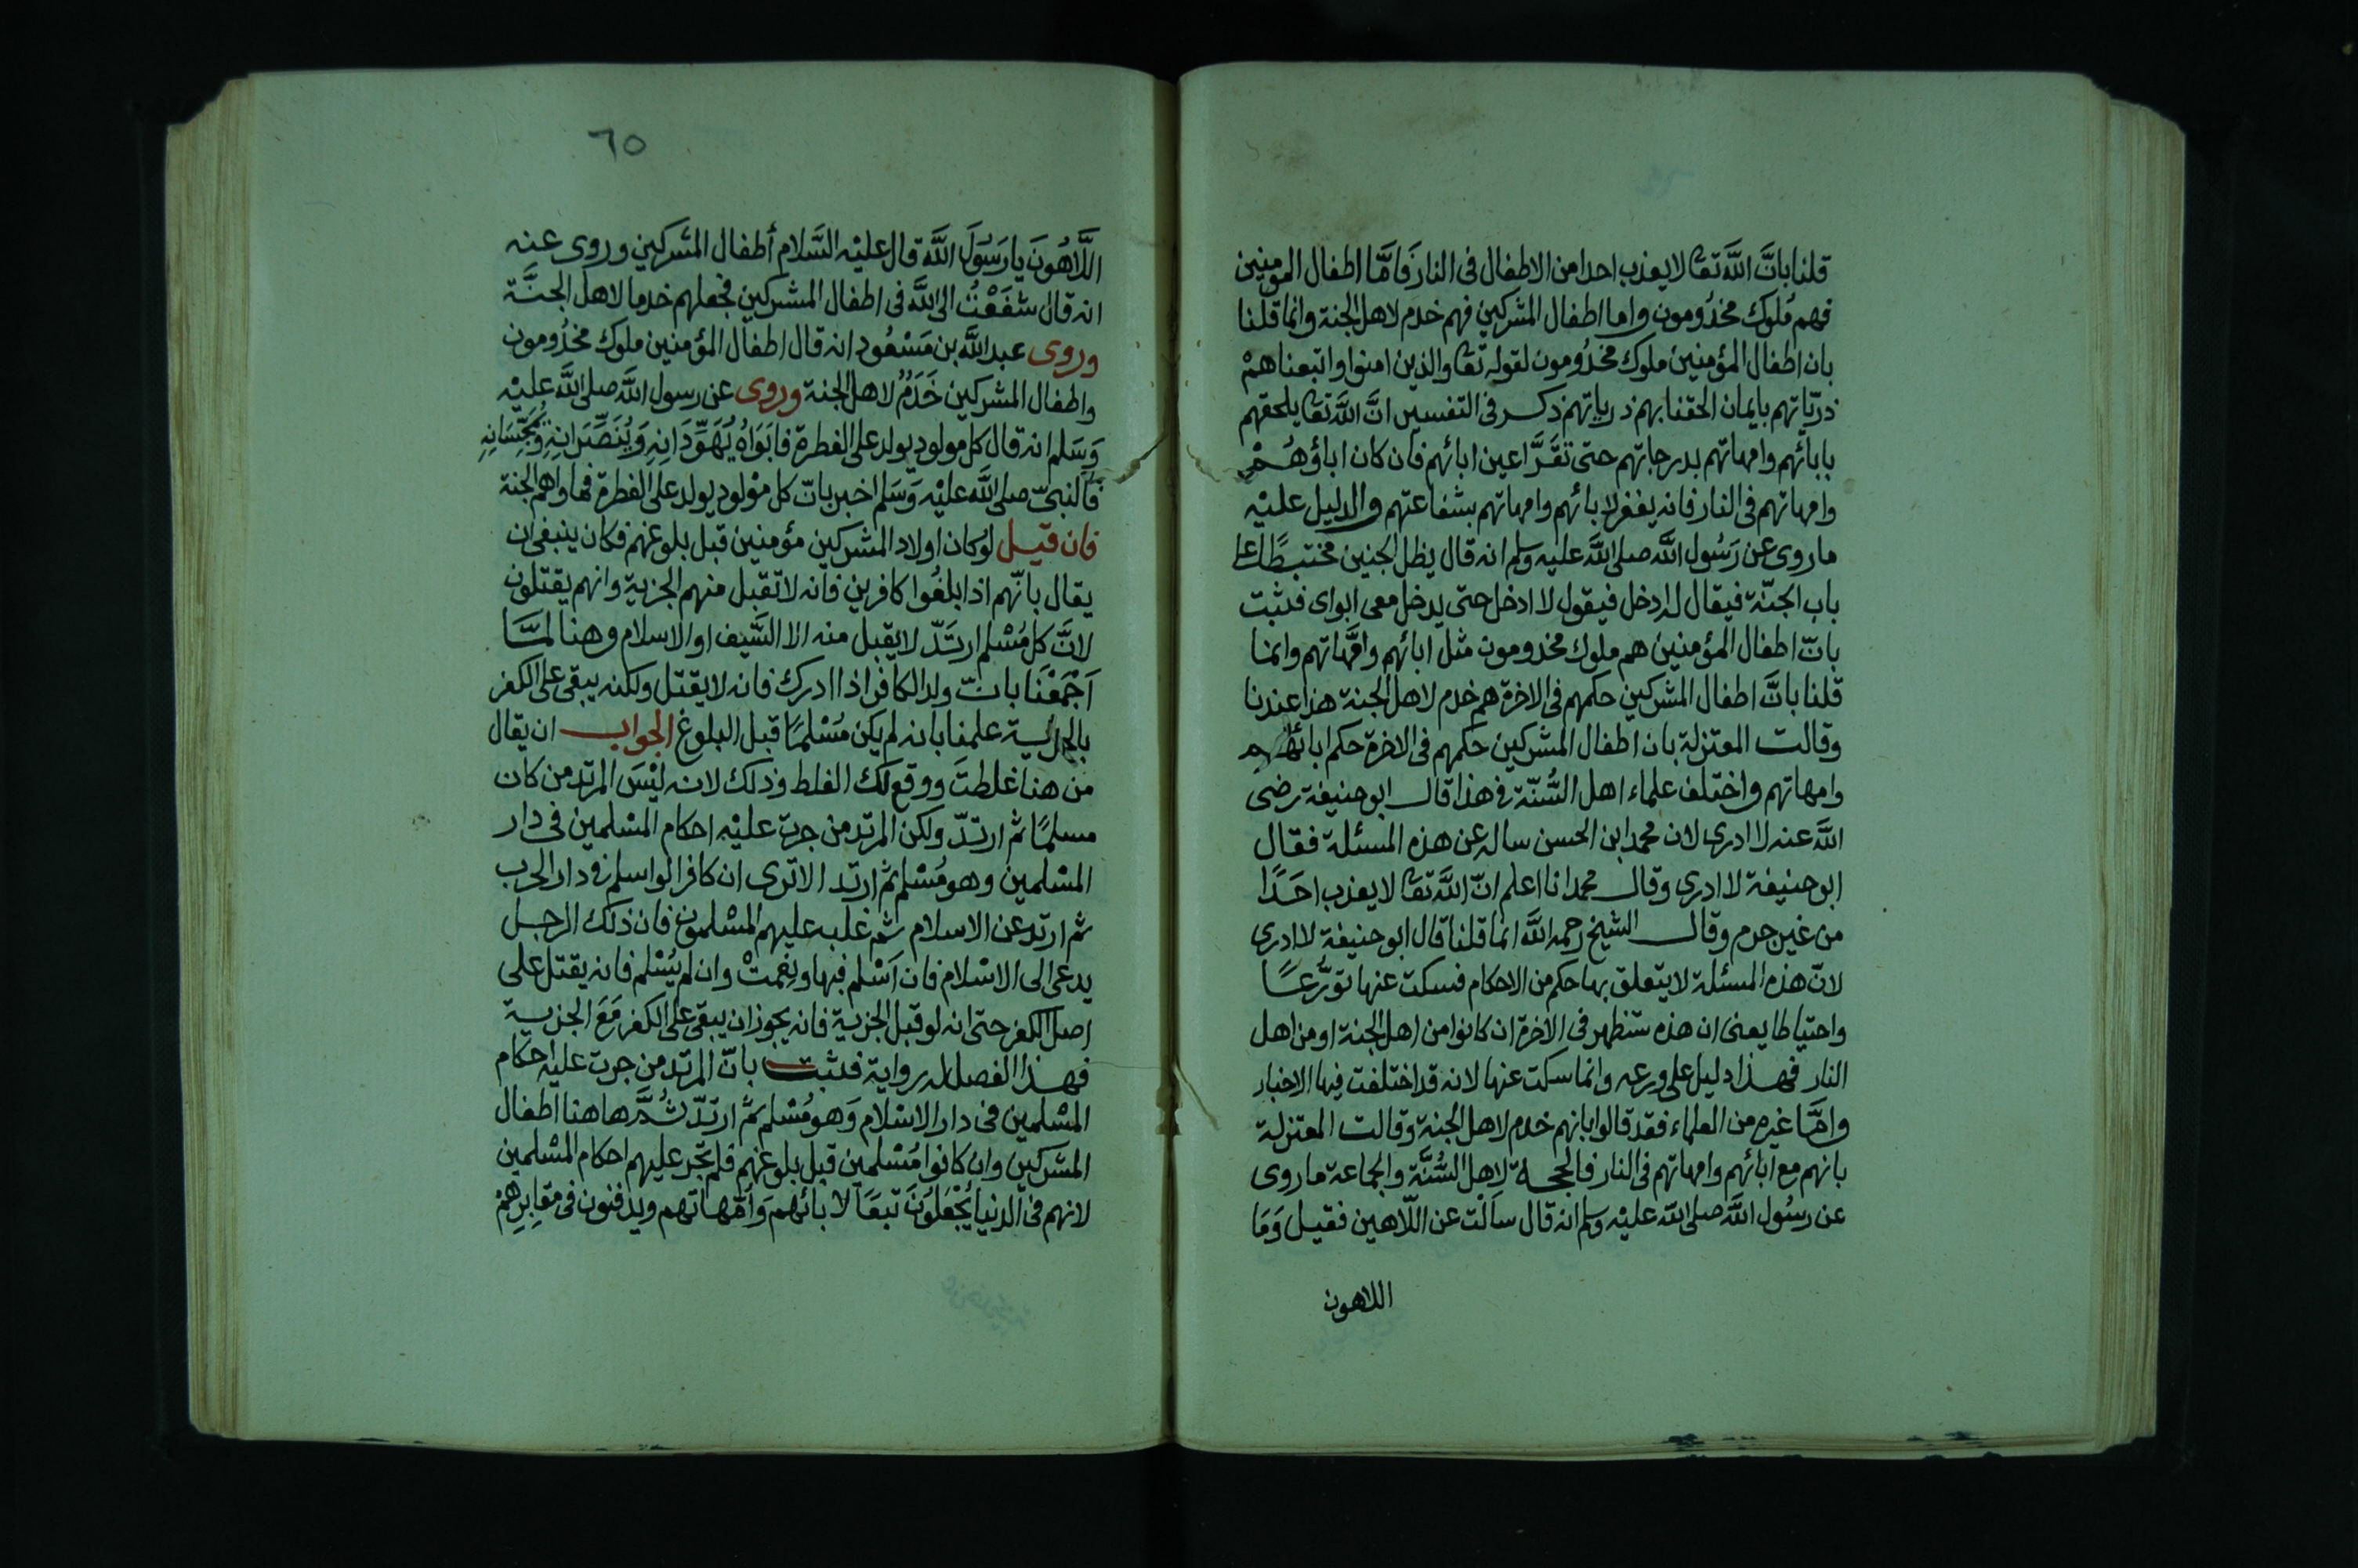 قلنا بانَّ اللَّه تعا لا يعذب احدا من الاطفال فى النار فَامَّا اطفال المؤمنين
فهم مُلوك مخدُومون واما اطفال المشركين فهم خدم لاهل الجنة وانما قلنا
بان اطفال المؤمنين ملوك مخدُومون لقوله تعا والذين امنوا واتبعناهمْ
ذريّاتهم بايمان الحقنا بهم ذرياتهم ذكر فى التفسير انَّ اللَّه تعا يلحقهم
بابائهم وامهاتهم بدرجاتهم حتى تقَرَّ اعين ابائهم فان كان اباؤهُمْ
وامهاتهم فى النار فانه يغفر لابائهم وامهاتهم بشفاعتهم والدليل عليْه
ما روى عن رَسُول اللَّه صلى اللَّه عليه وسلم انه قال يظل الجنين محتبطًا على
باب الجنّة فيقال له ادخل فيقول لا ادخل حتى يدخل معى ابواى فثبت
بانّ اطفال المؤمنين هم ملوك مخدومون مثل ابائهم وامَّهاتهم وانما
قلنا بانَّ اطفال المشركين حكمهم فى الاخرة هم خدم لاهل الجنة هذا عندنا
وقالت المعتزلة بان اطفال المشركين حكمهم فى الاخرة حكم ابائهم
وامهاتهم واختلف علماء اهل السُّنّة فى هذا قال ابو حنيفة رضى
اللَّه عنه لا ادرى لان محمد ابن الحسن ساله عن هذه المسئلة فقال
ابو حنيفة لا ادرى وقال محمد انا اعلم انّ اللَّه تعا لا يعذب احَدًا
من غير جرم وقال الشيخ رحمه اللَّه انما قلنا قال ابو حنيفة لا ادرى
لانّ هذه المسئلة لا يتعلق بها حكم من الاحكام فسكت عنها تورُّعًا
واحتياطا يعنى ان هذه ستظهر فى الاخرة ان كانوا من اهل الجنة او من اهل
النار فهذا دليل على ورعه وانما سكت عنها لانه قد اختلفت فيها الاخبار
وامَّا غيره من العلماء فقد قالوا بانهم خدم لاهل الجنة وقالت المعتزلة
بانهم مع ابائهم وامهاتهم فى النار فالحجة لاهل السُّنَّة والجماعة ما روى
عن رسُول اللَّه صلى اللّه عليْه وسلم انه قال سَألْت عن اللّاهين فقيل وَمَا
اللاهون
٦٥
اللَّاهُونَ يا رَسُولَ اللَّه قال عليْه السَّلام أطفال المشركين وروى عنه
انه قال شفَعْتُ الى اللَّه فى اطفال المشركين فجعلهم خدما لاهل الجنَّة
وروى عبد اللَّه بن مَسْعُود انه قال اطفال المؤمنين ملوك مخدُومون
واطفال المشركين خَدَمٌ لاهل الجنة وروى عن رسول اللَّه صلى اللَّه عليْه
وَسَلم انه قال كل مولود يولد على الفطرة فابَوَاهُ يُهَوِّدَانِهِ وَيُنَصِّرَانِهِ وَيُمَجِّسَانِهِ
فالنبىّ صلى اللَّه عليْه وَسَلم اخبر بانّ كل موْلود يولد على الفطرة فماواهم الجنة
فان قيل لوْ كان اولاد المشركين مؤمنين قبل بلوغهم فكان ينبغى ان
يقال بانّهم اذا بلغُوا كافرين فانه لا تقبل منهم الجزية وانهم يقتلون
لانَّ كل مُسْلم ارتَدّ لا يقبل منه الا السَّيف او الاسلام وهنا لمَّا
اَجْمَعْنَا بانّ ولد الكافر اذا ادرك فانه لا يقتل ولكنه يبقى على الكفر
بالجزية علمنا بانه لم يكن مُسْلمًا قبل البلوغ الجواب ان يقال
من هنا غلطتَ ووقع لك الغلط وذلك لانه ليْسَ المرتد من كان
مسلمًا ثم ارتدّ ولكن المرتد من جرت عليْه احكام المسْلمين فى دار
المسْلمين وهو مُسْلم ثم ارتد الا ترى ان كافرا لو اسلم فى دار الحرب
ثم ارتد عن الاسلام ثم غلبه عليهم المسْلمون فان ذلك الرجل
يدعى الى الاسْلام فان اَسْلم فبها ونِعمتْ وان لم يُسْلم فانه يقتل على
اصل الكفر حتى انه لو قبل الجزية فانه يجوز ان يبقى على الكفر مَعَ الجزية
فهذا الفصل له رواية فثبت بانّ المرتد من جرت عليه احكام
المسْلمين فى دار الاسْلام وَهو مُسْلم ثم ارتدّ ثُمَّ هاهنا اطفال
المشركين وان كانوا مُسْلمين قبل بلوغهم فلم تجر عليهم احكام المسْلمين
لانهم فى الدنيا يُجْعَلُونَ تبعًا لابائهم وَأمَّهاتهم ويدفنون فى مقابِرِهمْ